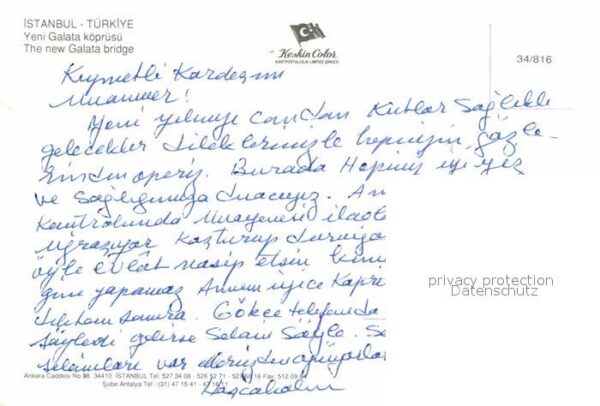 İSTANBUL - TÜRKİYE
Yeni Galata köprüsü
The new Galata bridge
Keskin Color
KARTPOSTALCILIK LIMITED ŞİRKETİ
34/816
Kıymetli Kardeşim
Muammer!
Yeni yılınıyı candan Kutlar Sağlıklı
gelecekler dileklerimizle hepinizin gözle-
rinden operiz. Burada Hepimiz iyiyiz
ve sağlığınıza duacıyız. An
kontrolunda Muayenesi ilacla
Uğraşıyor Koşturup duruyo
öyle evlât nasip etsin kim
gını yapamaz Annem iyice Kapri
Gökçe telefonda
söyledi gelirse Selam Söyle. Se
selamları var
privacy protection
Datenschutz
Ankara Caddesi No.98 34410 İSTANBUL Tel: 527 34 06 - 526 52 71 - 527 68 16 Fax: 512 09 64
Şube Antalya Tel: (31) 47 15 41 - 47 16 11